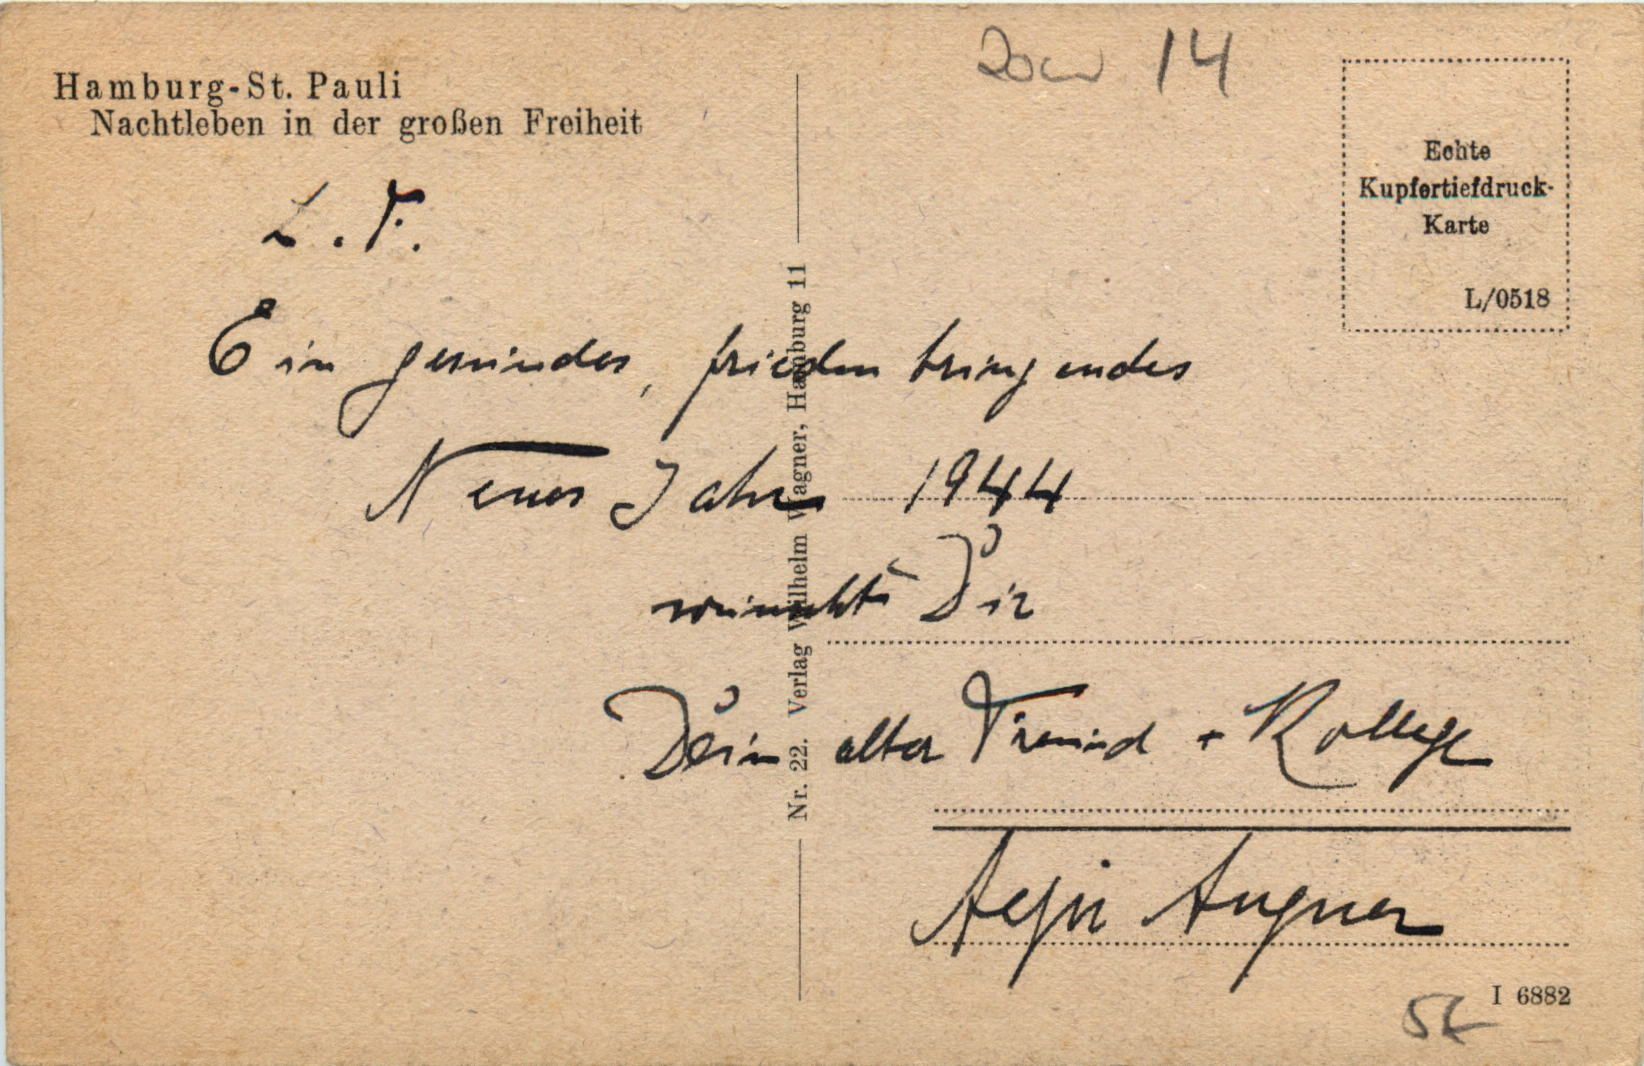 Hamburg-St. Pauli
Nachtleben in der großen Freiheit
14
Echte
Kupfertiefdruck-
Karte
L/0518
L. F.
Ein gesundes, frieden bringendes
Neues Jahr 1944
wünscht Dir
Dein alter Freund + Kollege
Augner
Nr. 22. Verlag Wilhelm Wagner, Hamburg 11
I 6882